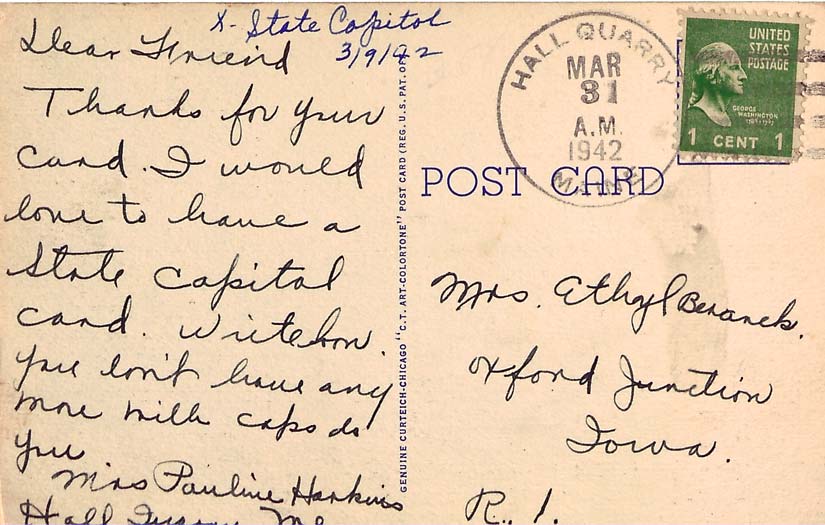 X- State Capitol
3/9/42
Dear Friend
Thanks for your
card. I would
love to have a
State Capital
card. Write
you don't have any
more milk caps do
you
Mrs Pauline Harkins
Hall Quarry Me
GENUINE CURTEICH-CHICAGO "C.T. ART-COLORTONE" POST CARD (REG. U.S. PAT. OF
HALL QUARRY
MAR
31
A.M.
1942
MAINE
UNITED
STATES
POSTAGE
GEORGE
WASHINGTON
1789-1797
1 CENT 1
POST CARD
Mrs. Ethyl Beranek.
Oxford Junction
Iowa.
R. 1.